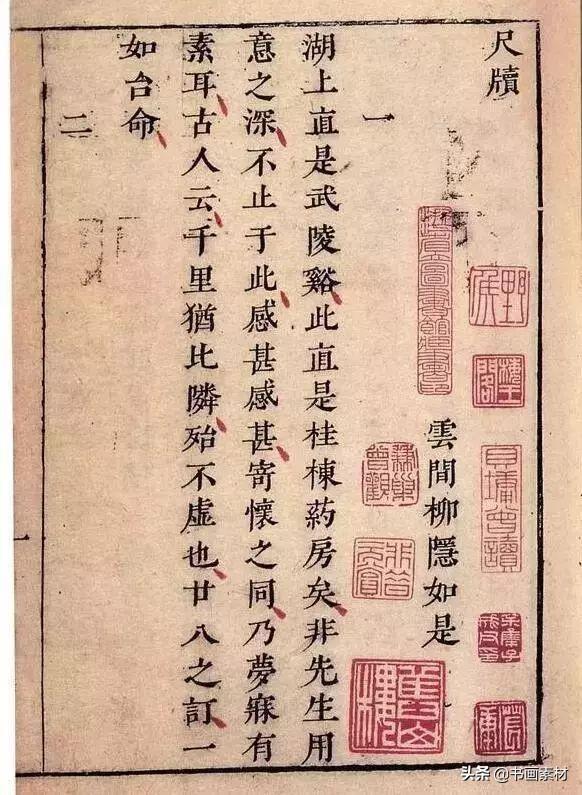 尺牘
雲間柳隱如是
一
湖上直是武陵谿此直是桂棟药房矣非先生用
意之深不止于此感甚感甚寄懷之同乃夢寐有
素耳古人云千里猶比隣殆不虛也廿八之訂一
如台命
二
一
头条@书画素材